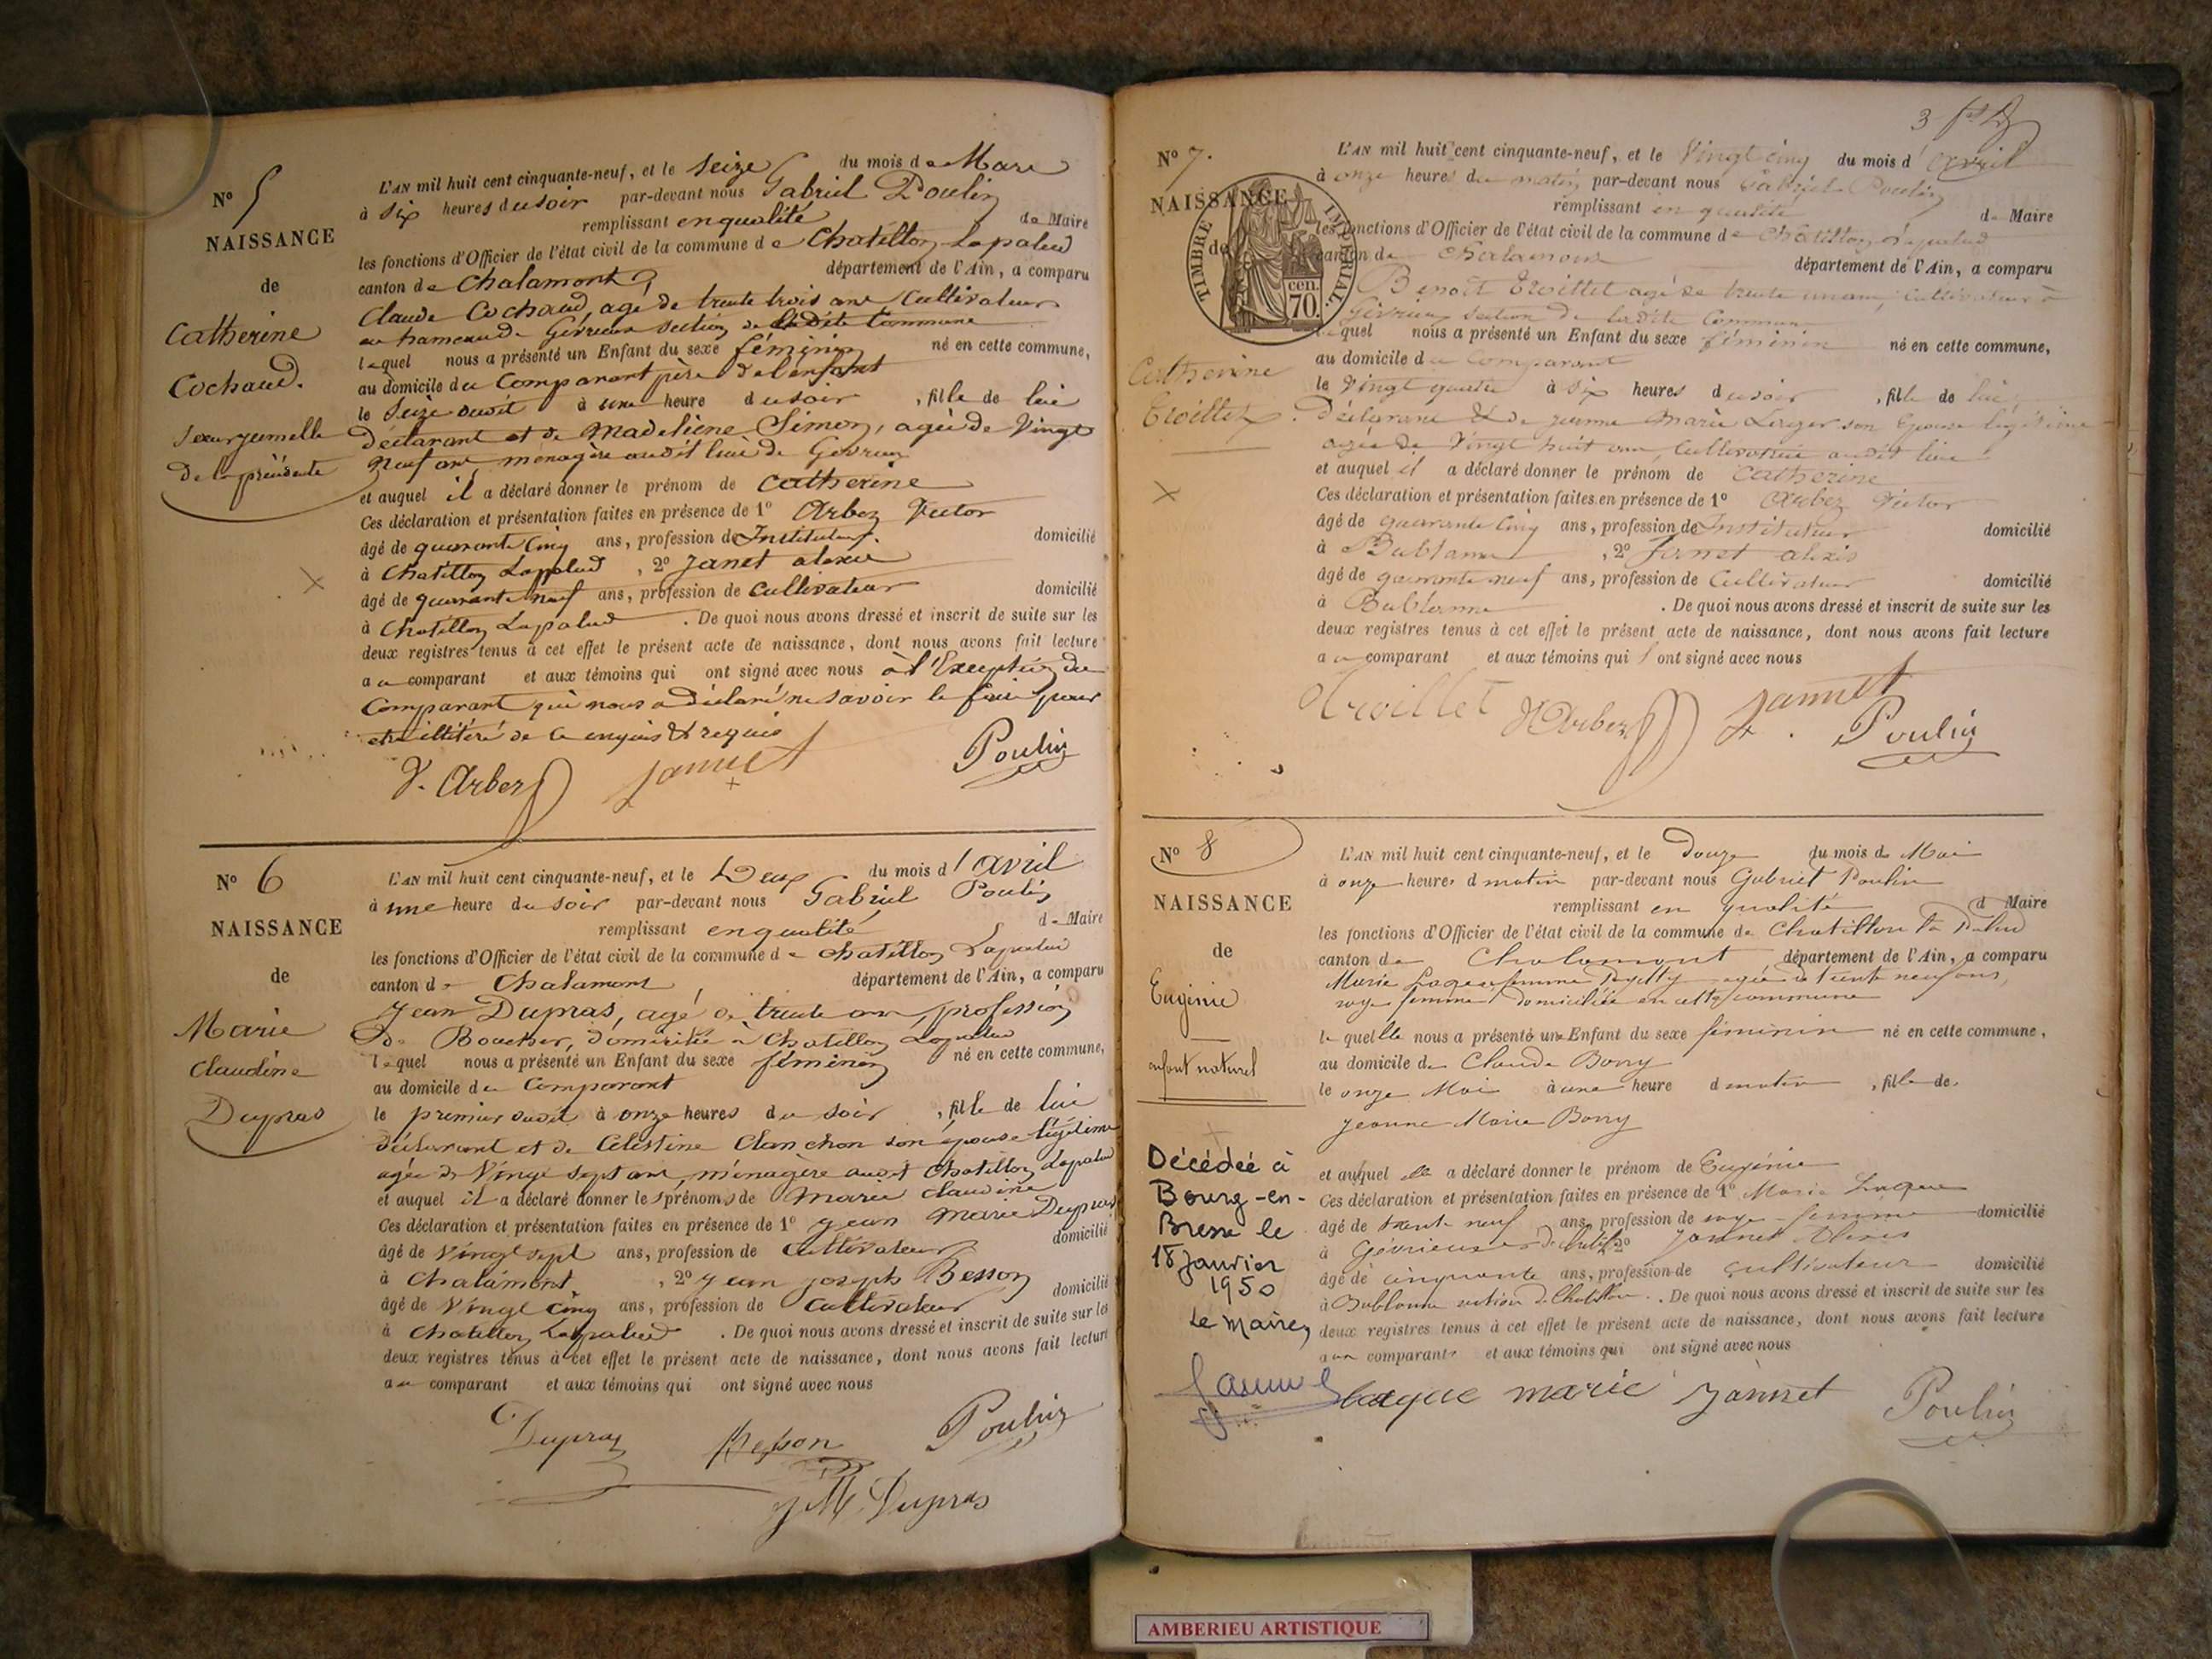 No 5
NAISSANCE
de
Catherine
Cochaud.
Sœur jumelle
De la précédente
L'AN mil huit cent cinquante-neuf, et le seize du mois de Mars
à Six heures du soir par-devant nous Gabriel Poulin
remplissant en qualité de Maire
les fonctions d'Officier de l'état civil de la commune de Chatillon Lapalud
canton de Chalamont département de l'Ain, a comparu
Claude Cochaud, agé de trente trois ans Cultivateur
au hameau de Gévrieux section de la dite Commune
lequel nous a présenté un Enfant du sexe féminin né en cette commune,
au domicile du Comparant père de l'enfant
le Seize dudit à une heure du soir, fille de lui
déclarant et de Madeliene Simon, agée de Vingt
Neuf ans, menagère audit lieu de Gevrieux
et auquel il a déclaré donner le prénom de Catherine
Ces déclaration et présentation faites en présence de 1° Arbez Victor
âgé de quarante Cinq ans, profession de Instituteur. domicilié
à Chatillon Lapalud, 2° Janet alexis
âgé de quarante neuf ans, profession de Cultivateur domicilié
à Chatillon Lapalud. De quoi nous avons dressé et inscrit de suite sur les
deux registres tenus à cet effet le présent acte de naissance, dont nous avons fait lecture
au comparant et aux témoins qui ont signé avec nous à l'Exception du
Comparant qui nous a déclaré ne savoir le faire pour
être illitéré de ce enquis & requis
V. Arbez Jannet Poulin
No 6
NAISSANCE
de
Marie
Claudine
Dupras
L'AN mil huit cent cinquante-neuf, et le Deux du mois d'avril
à une heure du soir par-devant nous Gabriel Poulin
remplissant en qualité de Maire
les fonctions d'Officier de l'état civil de la commune de Chatillon Lapalud
canton de Chalamont département de l'Ain, a comparu
Jean Dupras, agé de trente ans, profession
de Boucher, domicilié à Chatillon Lapalud
lequel nous a présenté un Enfant du sexe féminin né en cette commune,
au domicile du Comparant
le premier dudit à onze heures du soir, fille de lui
déclarant et de Célestine Clanchon son épouse légitime
agée de Vingt sept ans, ménagère audit Chatillon Lapalud
et auquel il a déclaré donner les prénoms de Marie Claudine
Ces déclaration et présentation faites en présence de 1° Jean Marie Dupras
âgé de Vingt sept ans, profession de Cultivateur domicilié
à Chalamont, 2° Jean Joseph Besson
âgé de Vingt Cinq ans, profession de Cultivateur domicilié
à Chatillon Lapalud. De quoi nous avons dressé et inscrit de suite sur les
deux registres tenus à cet effet le présent acte de naissance, dont nous avons fait lecture
au comparant et aux témoins qui ont signé avec nous
Dupras Besson Poulin
J M. Dupras
3
No 7.
NAISSANCE
de
Catherine
Troillet
TIMBRE IMPÉRIAL.
cen.
70.
L'AN mil huit cent cinquante-neuf, et le Vingt cinq du mois d'avril
à onze heures du matin par-devant nous Gabriel Poulin
remplissant en qualité de Maire
les fonctions d'Officier de l'état civil de la commune de Chatillon Lapalud
canton de Chalamont département de l'Ain, a comparu
Benoit Troillet agé de trente un ans, cultivateur à
Gévrieux section de la dite Commune
lequel nous a présenté un Enfant du sexe féminin né en cette commune,
au domicile du Comparant
le Vingt quatre à Six heures du soir, fille de lui
déclarant & de Jeanne Marie Loger son Epouse légitime
agée de Vingt huit ans, Cultivatrice audit lieu
et auquel il a déclaré donner le prénom de Catherine
Ces déclaration et présentation faites en présence de 1° Arbez Victor
âgé de quarante Cinq ans, profession de Instituteur domicilié
à Bublanne, 2° Jannet alexis
âgé de quarante neuf ans, profession de Cultivateur domicilié
à Bublanne. De quoi nous avons dressé et inscrit de suite sur les
deux registres tenus à cet effet le présent acte de naissance, dont nous avons fait lecture
au comparant et aux témoins qui ont signé avec nous
Troillet V Arbez Jannet
Poulin
No 8
NAISSANCE
de
Eugénie
enfant naturel
Décédée à
Bourg-en-
Bresse le
18 Janvier
1950
Le Maire,
L'AN mil huit cent cinquante-neuf, et le Douze du mois de Mai
à onze heures d matin par-devant nous Gabriel Poulin
remplissant en qualité d Maire
les fonctions d'Officier de l'état civil de la commune de Chatillon la Palud
canton de Chalamont département de l'Ain, a comparu
Marie Laque femme agée de trente neuf ans,
sage femme domiciliée en cette commune
lequelle nous a présenté une Enfant du sexe féminin né en cette commune,
au domicile de Claude Borry
le onze Mai à une heure d matin, fille de
Jeanne Marie Borry
et auquel elle a déclaré donner le prénom de Eugénie
Ces déclaration et présentation faites en présence de 1° Marie Laque
âgé de trente neuf ans, profession de sage-femme domicilié
à Gévrieux 2° Jannet Alexis
âgé de cinquante ans, profession de cultivateur domicilié
à Bublanne section de Chatillon. De quoi nous avons dressé et inscrit de suite sur les
deux registres tenus à cet effet le présent acte de naissance, dont nous avons fait lecture
aux comparants et aux témoins qui ont signé avec nous
laque marie Jannet Poulin
AMBERIEU ARTISTIQUE